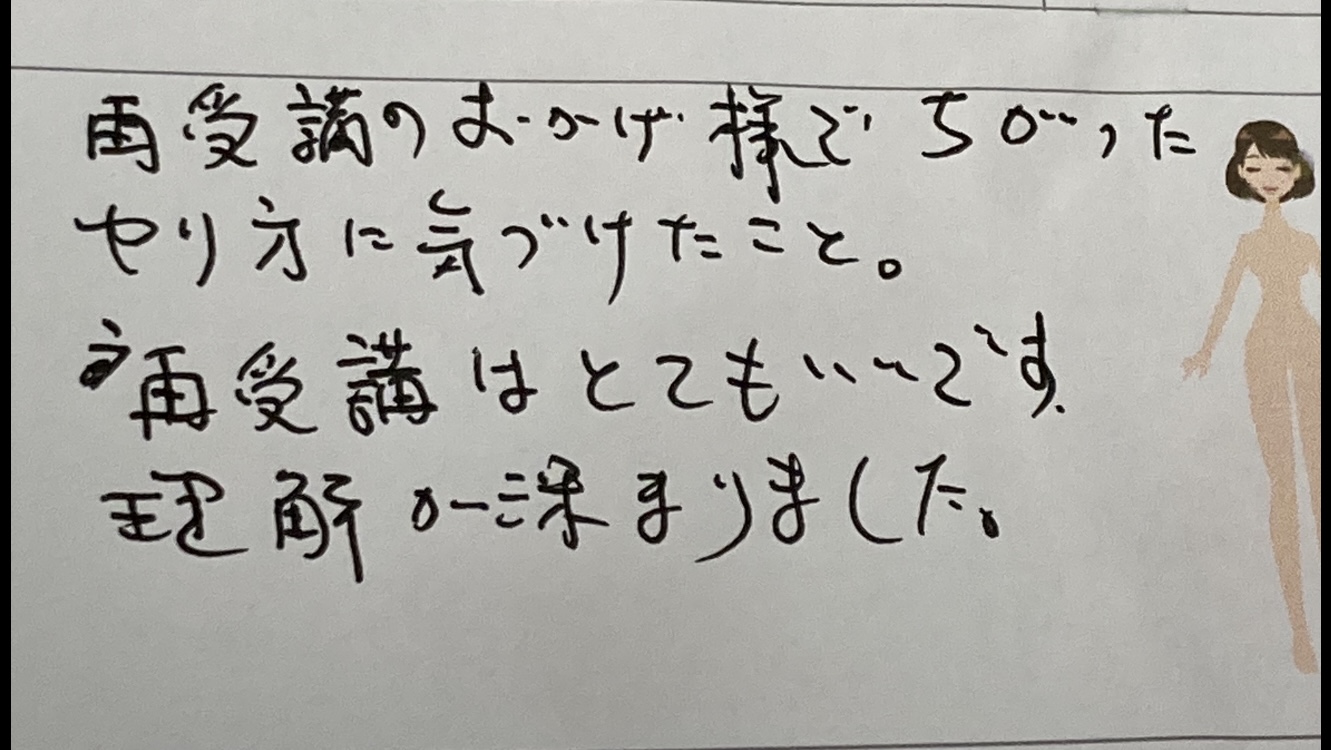 再受講のおかげ様でちがった
やり方に気づけたこと。
再受講はとてもいいです。
理解が深まりました。